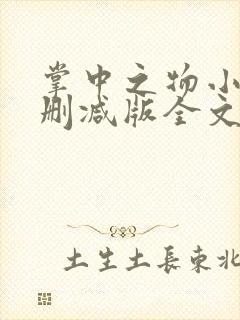 掌中之物小
删减版全文
土生土長東北